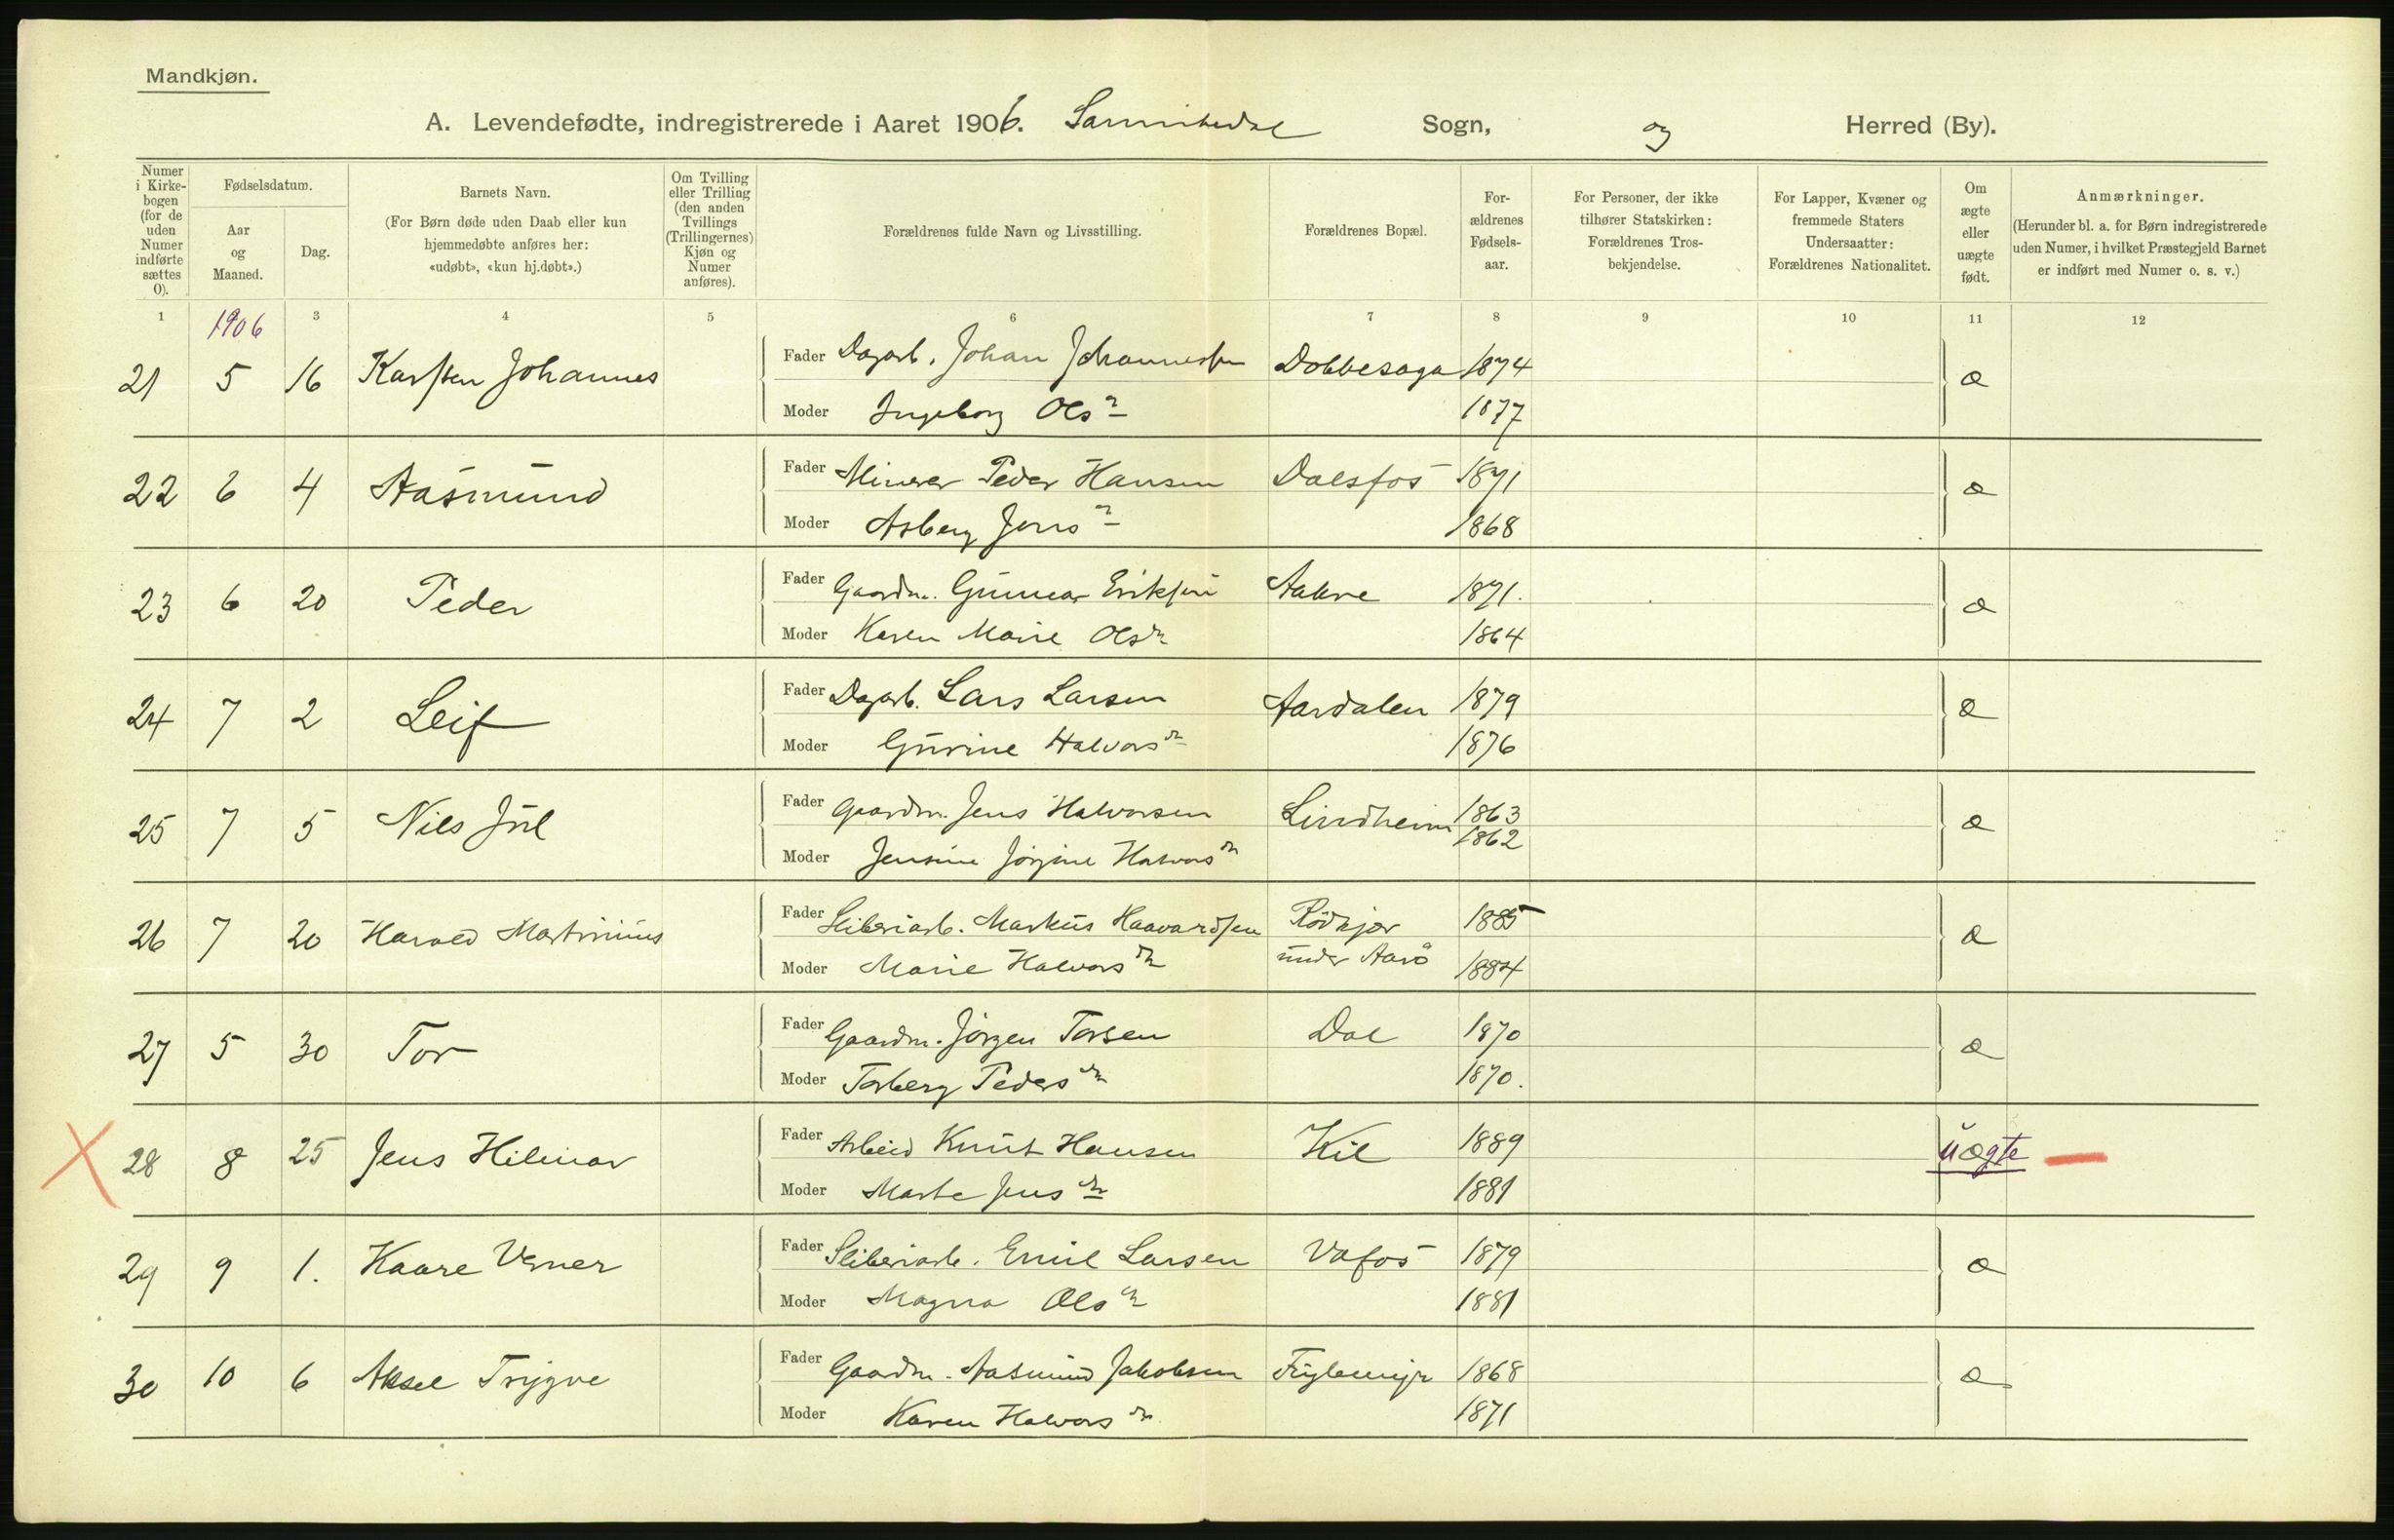 Mandkjøn.
A. Levendefødte, indregistrerede i Aaret 1906. Sannikedal Sogn, og Herred (By).
Numer i Kirkebogen (for de uden Numer indførte sættes 0).
Fødselsdatum.
Aar og Maaned.
Dag.
Barnets Navn.
(For Børn døde uden Daab eller kun hjemmedøbte anføres her: «udøbt», «kun hj.døbt».)
Om Tvilling eller Trilling (den anden Tvillings (Trillingernes) Kjøn og Numer anføres).
Forældrenes fulde Navn og Livsstilling.
Forældrenes Bopæl.
Forældrenes Fødselsaar.
For Personer, der ikke tilhører Statskirken: Forældrenes Trosbekjendelse.
For Lapper, Kvæner og fremmede Staters Undersaatter: Forældrenes Nationalitet.
Om ægte eller uægte født.
Anmærkninger.
(Herunder bl. a. for Børn indregistrerede uden Numer, i hvilket Præstegjeld Barnet er indført med Numer o. s. v.)
1 3 4 5 6 7 8 9 10 11 12
1906
21 5 16 Karsten Johannes Fader Dagarb. Johan Johannessen Dobbesaga 1874 æ
Moder Ingeborg Olsn 1877
22 6 4 Aasmund Fader Minerer Peder Hansen Dalsfos 1871 æ
Moder Asberg Jensn 1868
23 6 20 Peder Fader Gaardm. Gunnar Eriksen Aakre 1871. æ
Moder Karen Marie Olsdn 1864
24 7 2 Leif Fader Dagarb. Lars Larsen Aardalen 1879 æ
Moder Gurine Halvorsdn 1876
25 7 5 Nils Juel Fader Gaardm. Jens Halvorsen Lindheim 1863 æ
Moder Jensine Jørgine Halvorsdn 1862
26 7 20 Harald Martinius Fader Sliberiarb. Markus Haavardsen Rødkjær 1885 æ
Moder Marie Halvorsdn under Aarö 1884
27 5 30 Tor Fader Gaardm. Jörgen Torsen Dal 1870 æ
Moder Torberg Pedersdn 1870.
28 8 25 Jens Hilmar Fader Arbeid Knut Hansen Kil 1889 uægte
Moder Marte Jensdn 1881
29 9 1. Kaare Verner Fader Sliberiarb. Emil Larsen Vafos 1879 æ
Moder Magna Olsdn 1881
30 10 6 Aksel Trygve Fader Gaardm. Aasmund Jakobsen Fuglemyr 1868 æ
Moder Karen Halvorsdn 1871